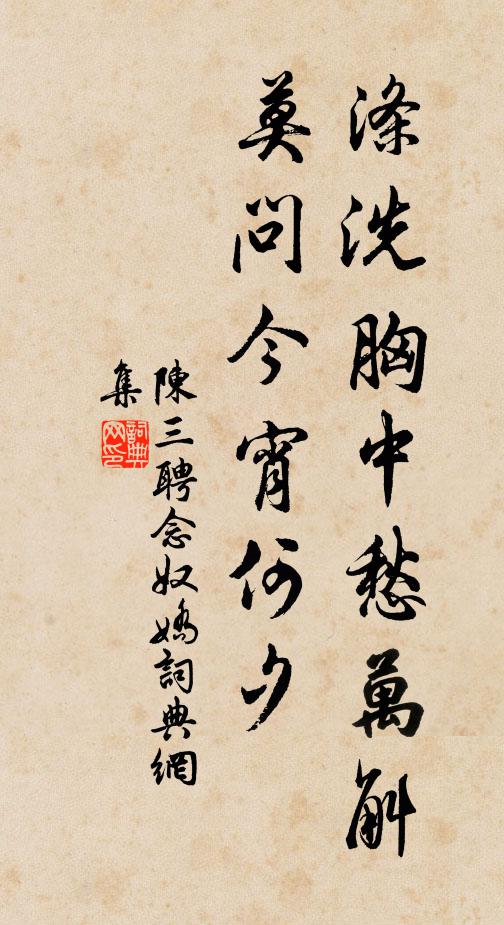 滌洗胸中愁萬斛
莫問今宵何夕
陳三聘念奴嬌詞典網
集
詞典网印